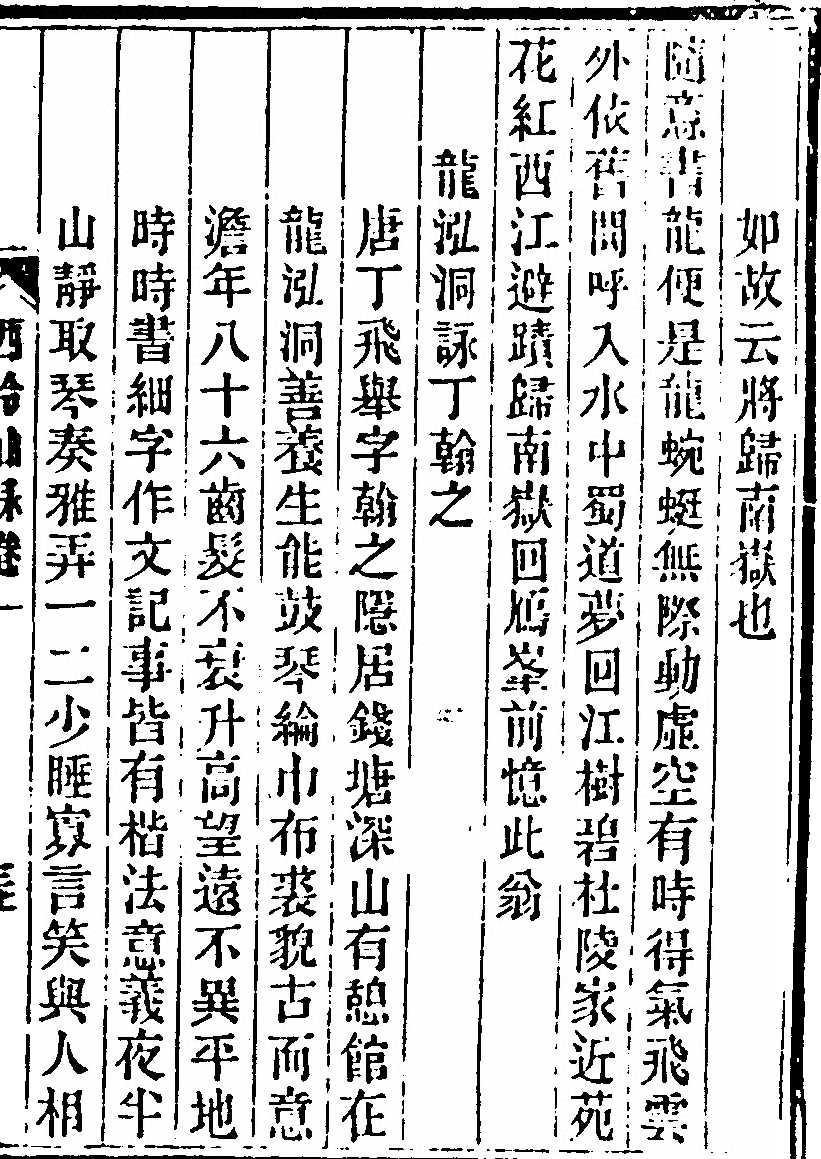 如故云將歸南嶽也
隨意書龍便是龍蜿蜒無際動虛空有時得氣飛雲
外依舊間呼入水中蜀道夢回江樹碧杜陵家近苑
花紅西江避蹟歸南嶽回鴈峯前憶此翁
龍泓洞詠丁翰之
唐丁飛舉字翰之隱居錢塘深山有憩館在
龍泓洞善養生能鼓琴綸巾布裘貌古而意
澹年八十六齒髮不衰升高望遠不異平地
時時書細字作文記事皆有楷法意義夜半
山靜取琴奏雅弄一二少睡寡言笑與人相
西泠仙詠卷一